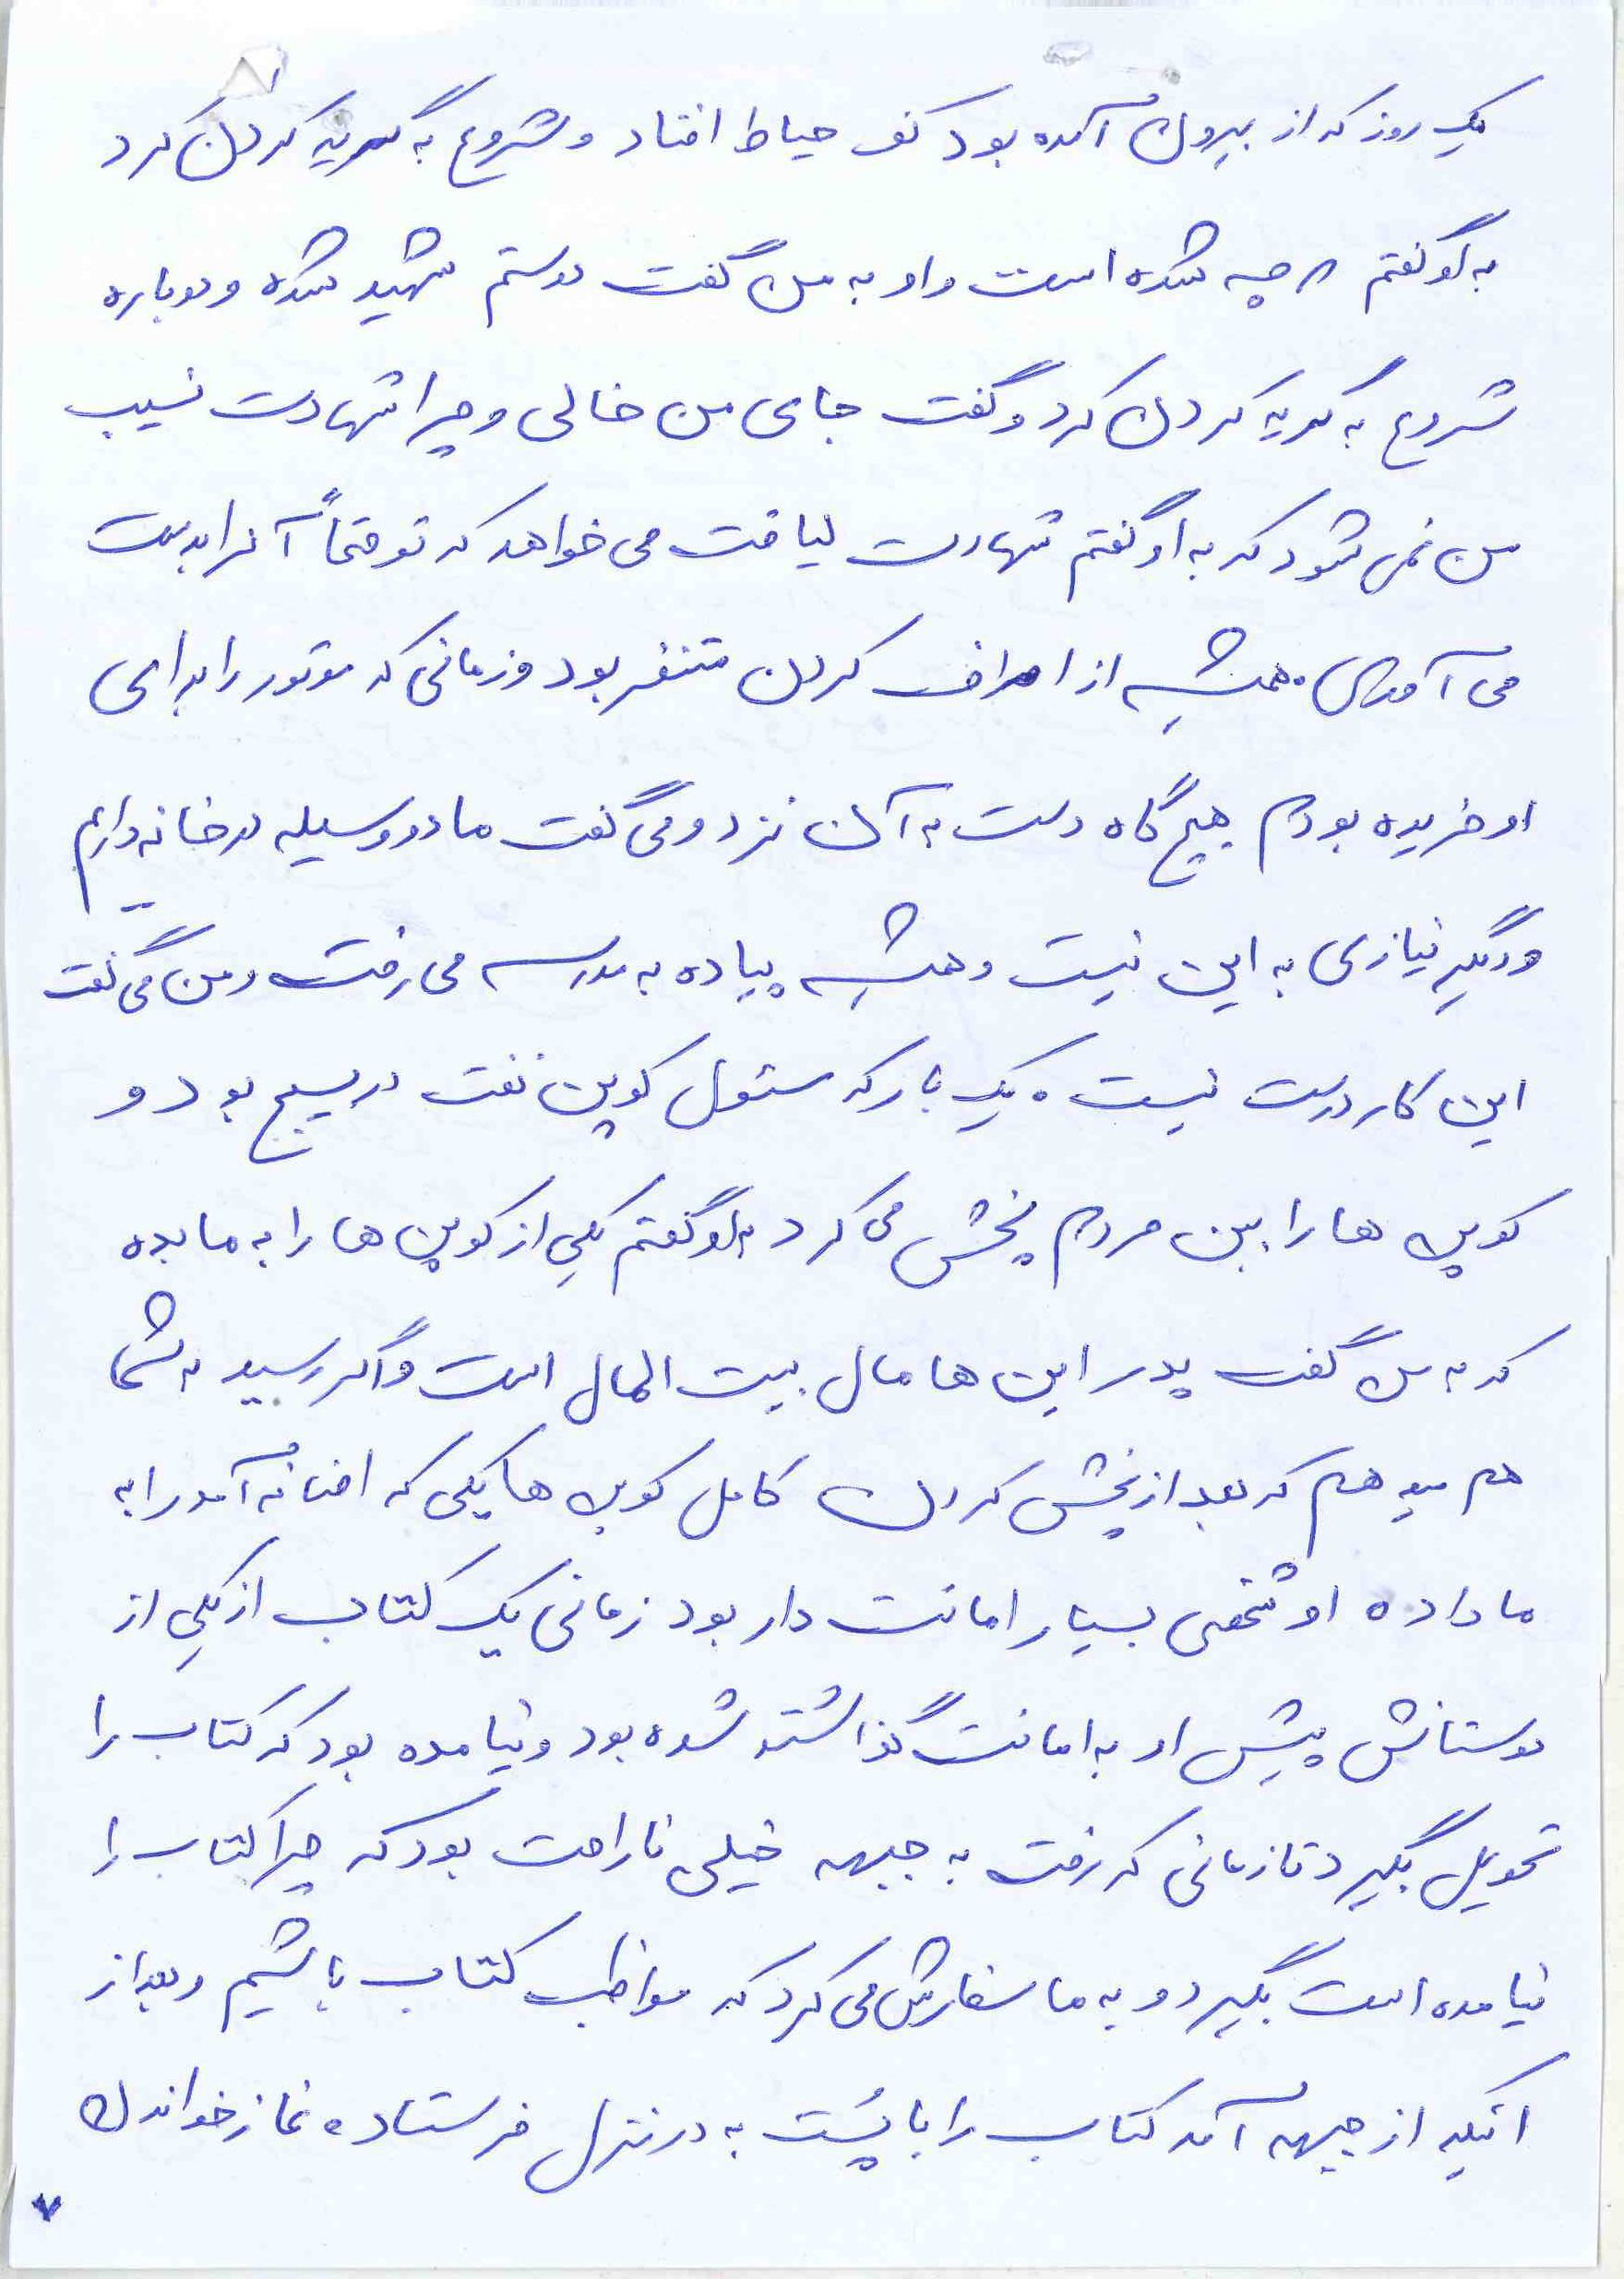 یک روز که از بیرون آمده بود کف حیاط افتاد و شروع به گریه کردن کرد
به او گفتم چه شده است و او به من گفت دوستم شهید شده و دوباره
شروع به گریه کردن کرد و گفت جای من خالی و چرا شهادت نسیب
من نمی شود که به او گفتم شهادت لیاقت می خواهد که تو حتماً آنرا بدست
می آوری. همیشه از اصراف کردن متنفر بود و زمانی که موتور را برای
او خریده بودم هیچ گاه دست به آن نزد و می گفت ما دو وسیله در خانه داریم
و دیگر نیازی به این نیست و همیشه پیاده به مدرسه می رفت و من می گفت
این کار درست نیست. یک بار که مسئول کوپن نفت در بسیج بود و
کوپن ها را بین مردم پخش می کرد به او گفتم یکی از کوپن ها را به ما بده
که به من گفت پدر این ها مال بیت المال است و اگر رسید به شما
هم میدهم که بعد از پخش کردن کامل کوپن ها یکی که اضافه آمد را به
ما داده او شخصی بسیار امانت دار بود زمانی یک کتاب از یکی از
دوستانش پیش او به امانت گذاشته شده بود و نیامده بود که کتاب را
تحویل بگیرد تا زمانی که رفت به جبهه خیلی ناراحت بود که چرا کتاب را
نیامده است بگیرد و به ما سفارش می کرد که مواظب کتاب باشیم و بعد از
اینکه از جبهه آمد کتاب را با پُست به در منزل فرستاده نماز خواندن
۷